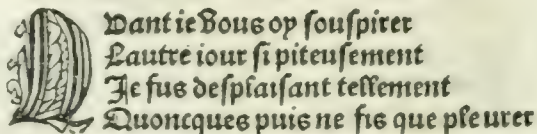 QVant ie vous oy souspirer
Lautre iour si piteusement
Je fus desplaisant tellement
Quoncques puis ne fis que pleurer